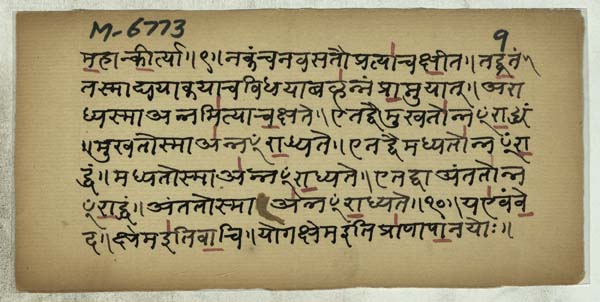 M-6773
१
महान्कीर्त्या॥९॥नकंचनवसतौप्रत्याचक्षीत।तद्व्रतं॥
तस्माद्ययाकयाचविधयाबह्वन्नंप्राप्नुयात्।अरा
ध्यस्माअन्नमित्याचक्षते।एतद्वैमुखतोन्नꣳराद्धं
॥मुखतोस्माअन्नꣳराध्यते॥एतद्वैमध्यतोन्नꣳरा
द्धं॥मध्यतोस्माअन्नꣳराध्यते।एतद्वाअंततोन्न
ꣳराद्धं॥अंततोस्माअन्नꣳराध्यते॥१०॥यएवंवे
द॥क्षेमइतिवाचि॥योगक्षेमइतिप्राणापानयोः॥